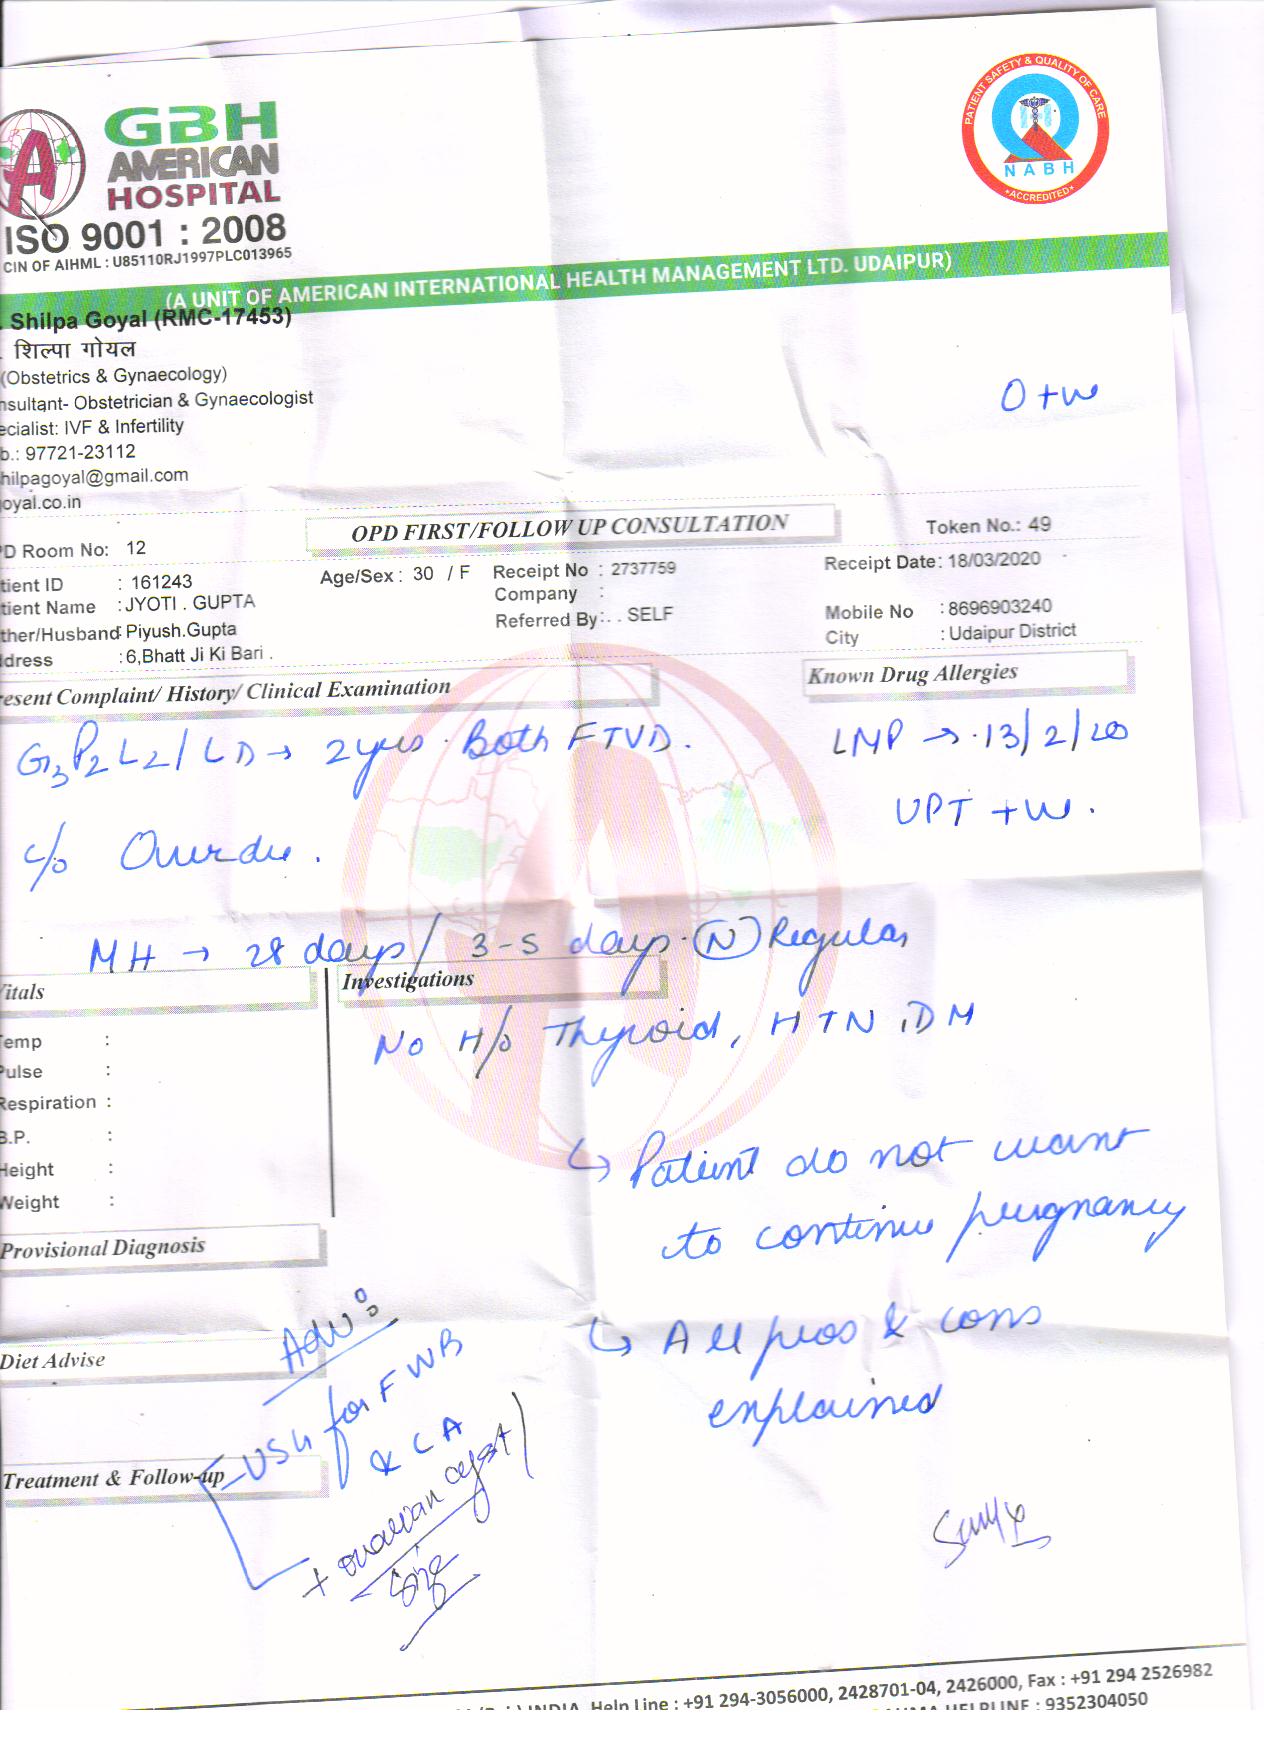 PATIENT SAFETY & QUALITY OF CARE
NABH
ACCREDITED
A
GBH
AMERICAN
HOSPITAL
ISO 9001 : 2008
CIN OF AIHML : U85110RJ1997PLC013965
(A UNIT OF AMERICAN INTERNATIONAL HEALTH MANAGEMENT LTD. UDAIPUR)
. Shilpa Goyal (RMC-17453)
. शिल्पा गोयल
(Obstetrics & Gynaecology)
nsultant- Obstetrician & Gynaecologist
ecialist: IVF & Infertility
b.: 97721-23112
hilpagoyal@gmail.com
oyal.co.in
O +ve
OPD FIRST/FOLLOW UP CONSULTATION
Token No.: 49
PD Room No: 12
tient ID : 161243 Age/Sex : 30 / F Receipt No : 2737759 Receipt Date: 18/03/2020
Company :
tient Name : JYOTI . GUPTA Referred By: . . SELF Mobile No : 8696903240
ther/Husband: Piyush.Gupta City : Udaipur District
ddress : 6,Bhatt Ji Ki Bari .
resent Complaint/ History/ Clinical Examination Known Drug Allergies
G3P2L2/LD → 2yrs. Both FTVD. LMP → 13/2/20
UPT +ve.
c/o Overdue.
MH → 28 days/ 3-5 days. (N) Regular
Vitals Investigations
No H/o Thyroid, HTN, DM
Temp :
Pulse :
Respiration :
B.P. :
Height :
Weight :
↳ Patient do not want
to continue pregnancy
Provisional Diagnosis
↳ All pros & cons
explained
Diet Advise
Adv:
USG for FWB
& CA
Treatment & Follow-up
+ ovarian cyst
size
INDIA. Help Line : +91 294-3056000, 2428701-04, 2426000, Fax : +91 294 2526982
HELPLINE : 9352304050